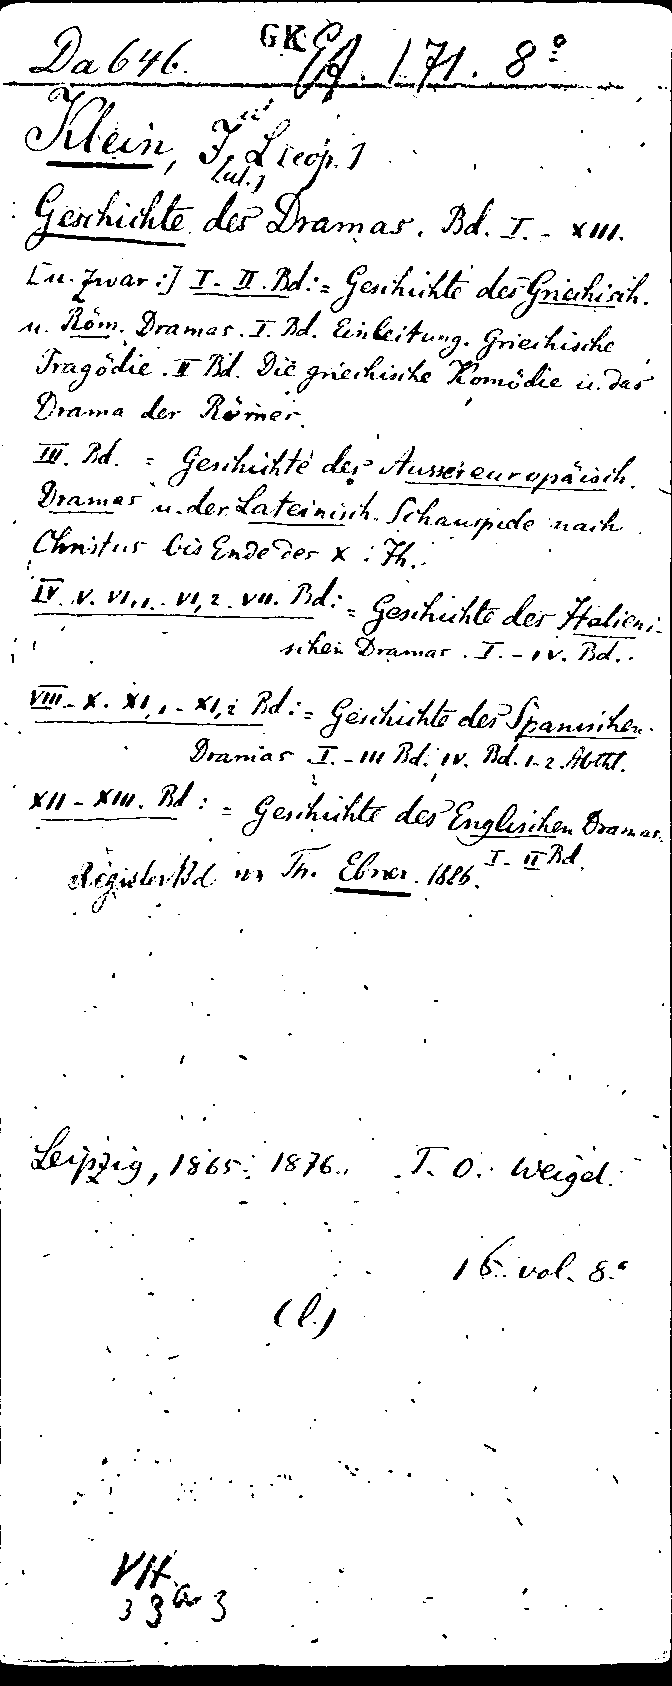 Da 646. GK Ef. 171. 8°
Klein, J. L[eop.]
[ul.]
Geschichte des Dramas. Bd. I. - XIII.
[u. zwar:] I. - II. Bd: = Geschichte des Griechisch.
u. Röm. Dramas. I. Bd. Einleitung. Griechische
Tragödie. II Bd. Die griechische Komödie u. das
Drama der Römer.
III. Bd. = Geschichte des Aussereuropäisch.
Dramas u. der Lateinisch. Schauspiele nach
Christus bis Ende des X. Jh.
IV. V. VI,1. - VI,2. VII. Bd: = Geschichte des Italieni-
schen Dramas. I. - IV. Bd.
VIII - X. XI,1 - XI,2 Bd: = Geschichte des Spanischen
Dramas I. - III Bd. IV. Bd. 1-2. Abthl.
XII - XIII. Bd: = Geschichte des Englischen Dramas.
I - II Bd.
Register Bd von Th. Ebner. 1886.
Leipzig, 1865-1876. T. O. Weigel.
16 vol. 8.°
(l.)
VH
3 3 a 3